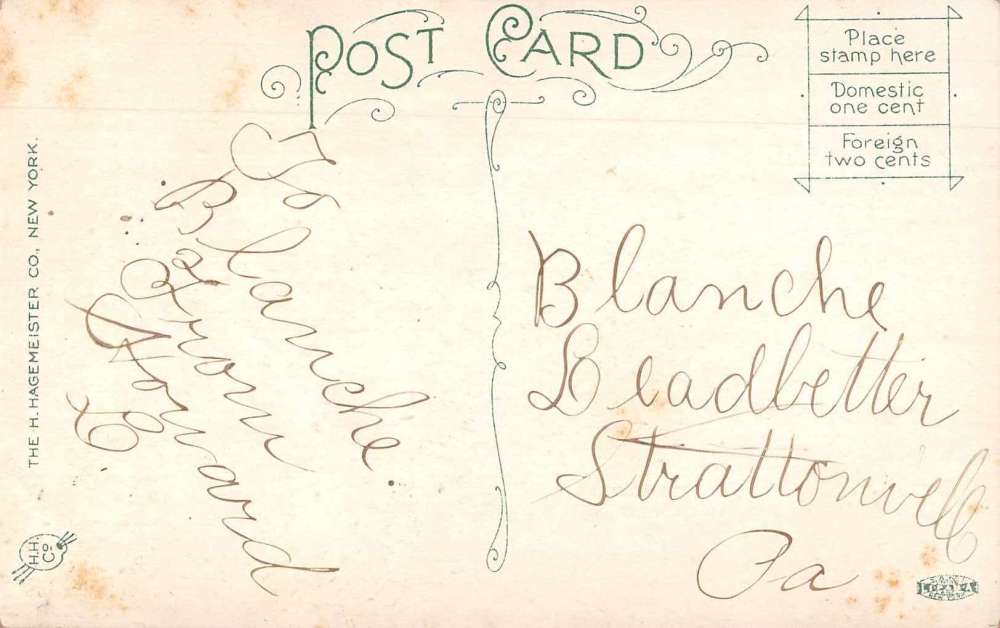 POST CARD
Place
stamp here
Domestic
one cent
Foreign
two cents
THE H. HAGEMEISTER CO., NEW YORK.
To
Blanche.
From
Norward
L
Blanche
Leadbetter
Strattonvell
Pa
H.H.
Co